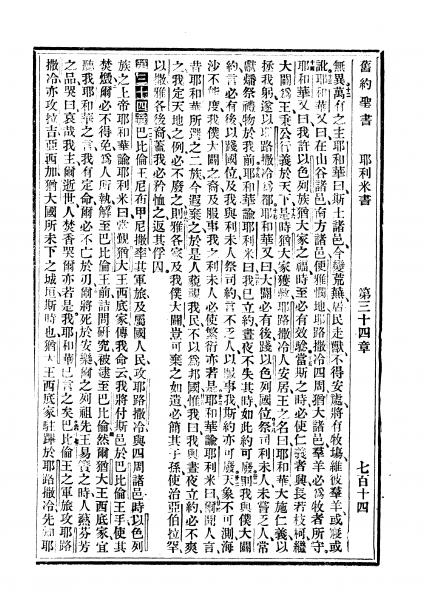 舊約聖書 耶利米書 第三十四章 七百十四
無異萬有之主耶和華曰斯土諸邑今變荒蕪居民走獸不得安處將有牧場維彼羣羊或寢或
訛耶和華又曰在山谷諸邑南方諸邑便雅憫地耶路撒冷四周猶大諸邑羣羊必爲牧者所守
耶和華又曰我許以色列族猶大家之福時至必有效驗當斯之時必使仁義者興長若枝柯繼
大闢爲王秉公行義於天下是時猶大家獲救耶路撒冷人安居王之名曰耶和華大施仁義以
拯我躬遂以耶路撒冷爲都耶和華又曰大闢必有後踐以色列國位祭司利未人未嘗乏人常
獻燔祭禮物於我前耶和華諭耶利米曰我已立約晝夜不失其時如此約可廢則我與僕大闢
約言必有後以踐國位及我與利未人祭司約言不乏人以服事我斯約亦可廢天象不可測海
沙不能度我僕大闢之裔及服事我之利未人必使繁衍亦若是耶和華諭耶利米曰爾聞人言
昔耶和華所選之二族今遐棄之於是人藐視我民不以爲邦國惟我曰我與晝夜立約必不爽
之我定天地之例必不廢之則雅各家及我僕大闢豈可棄之如遺必簡其子孫使治亞伯拉罕
以撒雅各後裔蓋我必矜恤之返其俘囚
第三十四章 巴比倫王尼布甲尼撒率其軍旅及屬國人民攻耶路撒冷與四周諸邑時以色列
族之上帝耶和華諭耶利米曰當覲猶大王西底家傳我命云我將付斯邑於巴比倫王手使其
焚燬爾必不得免爲人所執解至巴比倫王前詰問研究被逮至巴比倫然爾猶大王西底家宜
聽我耶和華之言我有定命爾必不亡於刃爾將死於安樂爾之列祖先王易簀之時人爇芬芳
之品哭曰哀哉我主爾逝世人焚香哭爾亦若是我耶和華已言之矣巴比倫王之軍旅攻耶路
撒冷亦攻拉吉亞西加猶大國所未下之城垣斯時也猶大王西底家駐蹕於耶路撒冷先知耶